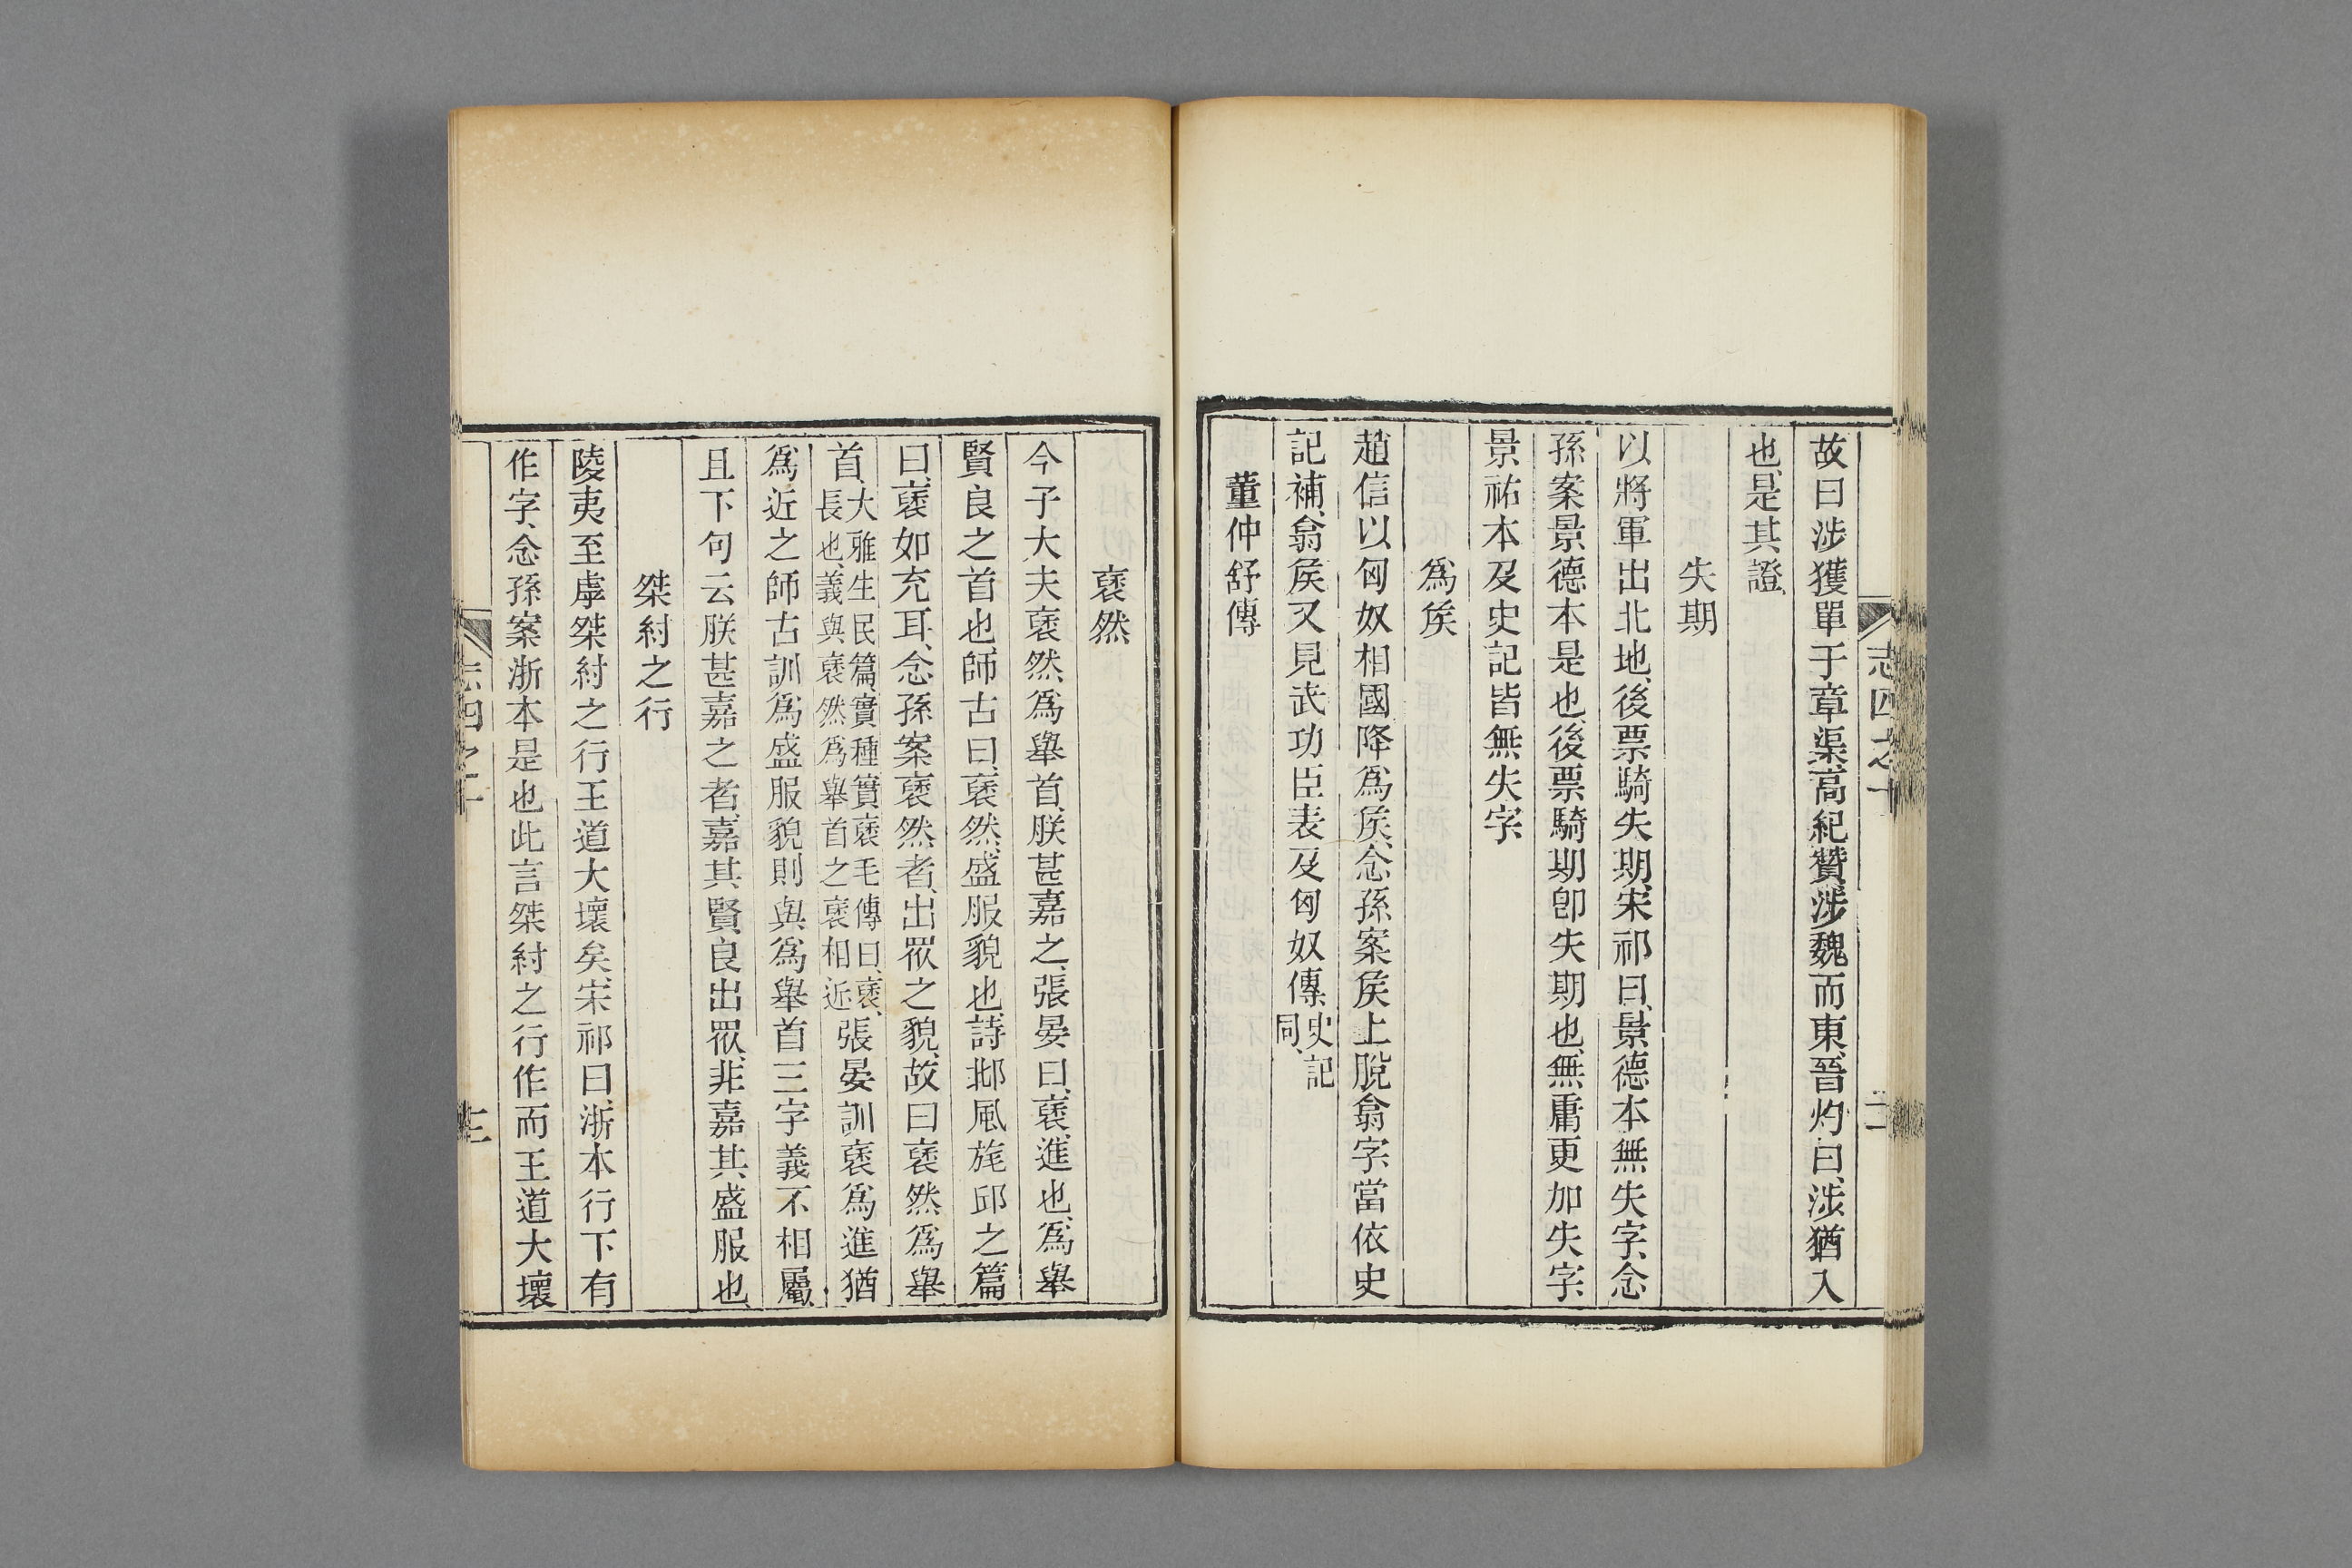 志四之十
故曰涉獲單于章渠、高紀贊涉魏而東、晉灼曰、涉猶入
也、是其證、
失期
以將軍出北地、後票騎失期、宋祁曰、景德本無失字、念
孫案景德本是也、後票騎期卽失期也、無庸更加失字、
景祐本及史記皆無失字、
爲矦
趙信以匈奴相國降爲矦、念孫案矦上脫翕字、當依史
記補、翕矦又見武功臣表及匈奴傳、史記
同、
董仲舒傳
裦然
今子大夫裦然爲舉首、朕甚嘉之、張晏曰、裦、進也、爲舉
賢良之首也、師古曰、裦然、盛服貌也、詩邶風旄邱之篇
曰、裦如充耳、念孫案裦然者、出眾之貌、故曰裦然爲舉
首、大雅生民篇、實種實裦、毛傳曰、裦、
長也、義與裦然爲舉首之裦相近、張晏訓裦爲進、猶
爲近之、師古訓爲盛服貌、則與爲舉首三字義不相屬、
且下句云朕甚嘉之者、嘉其賢良出眾、非嘉其盛服也、
桀紂之行
陵夷至虖桀紂之行王道大壞矣、宋祁曰、浙本行下有
作字、念孫案浙本是也、此言桀紂之行作而王道大壞
志四之十